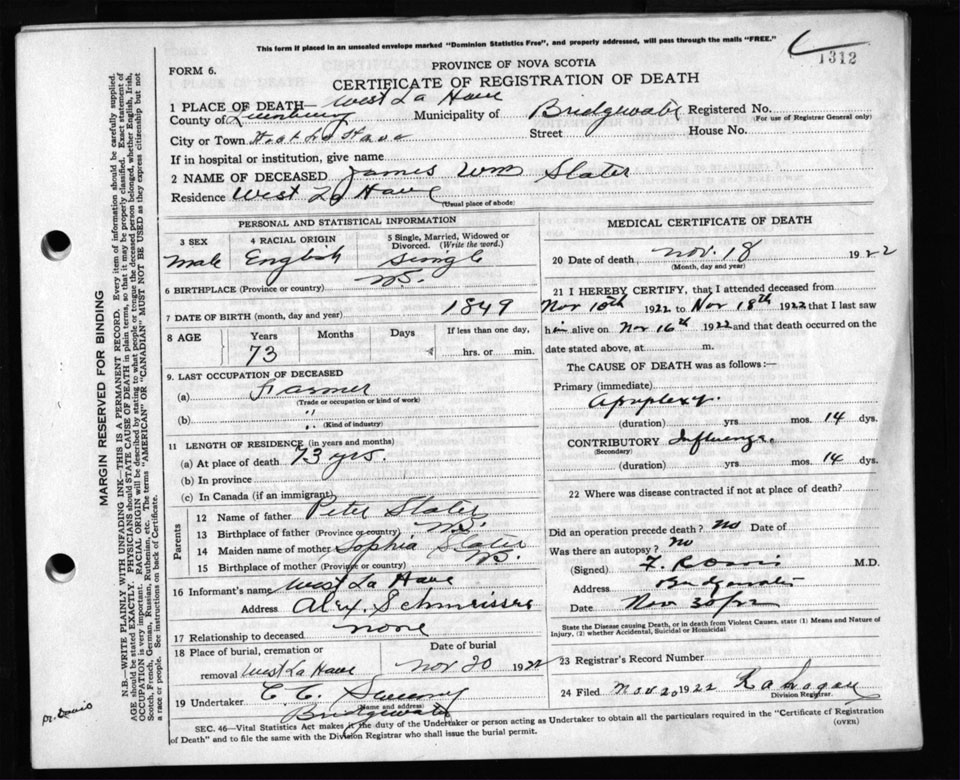 This form if placed in an unsealed envelope marked "Dominion Statistics Free", and properly addressed, will pass through the mails "FREE."
1312
FORM 6.
PROVINCE OF NOVA SCOTIA
CERTIFICATE OF REGISTRATION OF DEATH
1 PLACE OF DEATH— West La Have
County of Lunenburg Municipality of Bridgewater Registered No.
For use of Registrar General only)
City or Town West La Have Street House No.
If in hospital or institution, give name
2 NAME OF DECEASED James Wm Slater
Residence West La Have
(Usual place of abode)
PERSONAL AND STATISTICAL INFORMATION
3 SEX 4 RACIAL ORIGIN 5 Single, Married, Widowed or Divorced. (Write the word.)
Male English Single
6 BIRTHPLACE (Province or country) N.S.
7 DATE OF BIRTH (month, day and year) 1849
8 AGE Years Months Days If less than one day,
73 hrs. or min.
9. LAST OCCUPATION OF DECEASED
(a) Farmer
(Trade or occupation or kind of work)
(b) "
(Kind of industry)
11 LENGTH OF RESIDENCE (in years and months)
(a) At place of death 73 yrs.
(b) In province
(c) In Canada (if an immigrant)
Parents
12 Name of father Peter Slater
13 Birthplace of father (Province or country) N.S.
14 Maiden name of mother Sophia Slater
15 Birthplace of mother (Province or country) N.S.
16 Informant's name West La Have
Address Alex. Schmeisser
17 Relationship to deceased none
18 Place of burial, cremation or removal Date of burial
West La Have Nov 20 1922
19 Undertaker C. C.
(Name and address)
Bridgewater
MEDICAL CERTIFICATE OF DEATH
20 Date of death Nov. 18 1922
(Month, day and year)
21 I HEREBY CERTIFY, that I attended deceased from
Nov 10th 1922 to Nov 18th 1922 that I last saw
him alive on Nov 16th 1922 and that death occurred on the
date stated above, at m.
The CAUSE OF DEATH was as follows:—
Primary (immediate)
Apoplexy.
(duration) yrs mos. 14 dys.
CONTRIBUTORY Influenza.
(Secondary)
(duration) yrs mos. 14 dys.
22 Where was disease contracted if not at place of death?
Did an operation precede death? no Date of
Was there an autopsy? no
(Signed) M.D.
Address Bridgewater
Date Nov 30/22
State the Disease causing Death, or in death from Violent Causes, state (1) Means and Nature of Injury, (2) whether Accidental, Suicidal or Homicidal
23 Registrar's Record Number
24 Filed Nov. 20 1922
Division Registrar
SEC. 46—Vital Statistics Act makes it the duty of the Undertaker or person acting as Undertaker to obtain all the particulars required in the "Certificate of Registration
of Death" and to file the same with the Division Registrar who shall issue the burial permit.
(OVER)
MARGIN RESERVED FOR BINDING
N.B.—WRITE PLAINLY WITH UNFADING INK—THIS IS A PERMANENT RECORD. Every item of information should be carefully supplied.
AGE should be stated EXACTLY. PHYSICIANS should STATE CAUSE OF DEATH in plain terms, so that it may be properly classified. Exact statement of
OCCUPATION is very important. RACIAL ORIGIN will be described by stating to what people or tongue the deceased person belonged, whether English, Irish,
Scotch, French, German, Russian, Ruthenian, etc. The terms "AMERICAN" or "CANADIAN" MUST NOT BE USED as they express citizenship but not
a race or people. See instructions on back of Certificate.